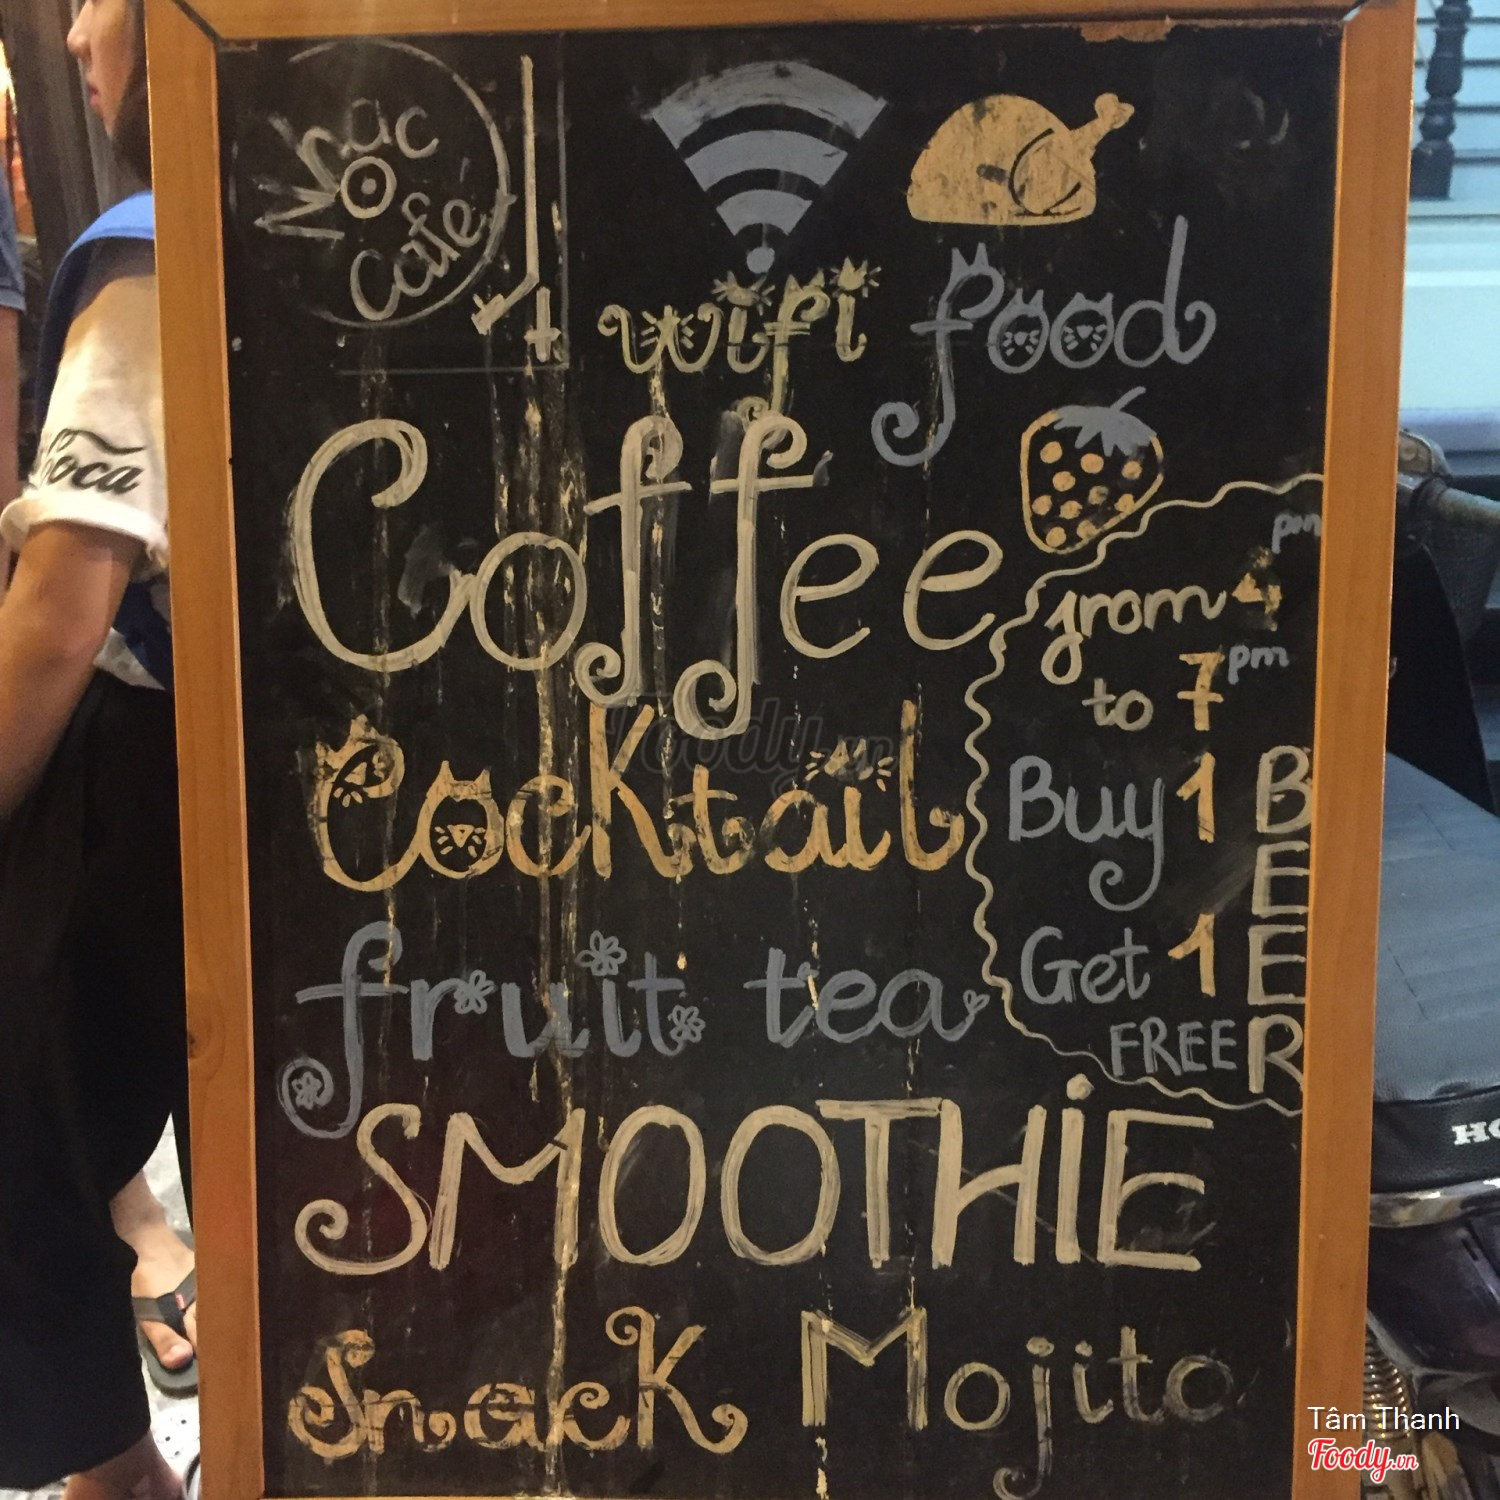 Nhạc
Café
wifi food
Coffee
from 4 pm
to 7 pm
Buy 1
Get 1
FREE
BEER
Cocktail
fruit tea
SMOOTHiE
Snack Mojito
Coca
HO
Foody.vn
Tâm Thanh
Foody.vn